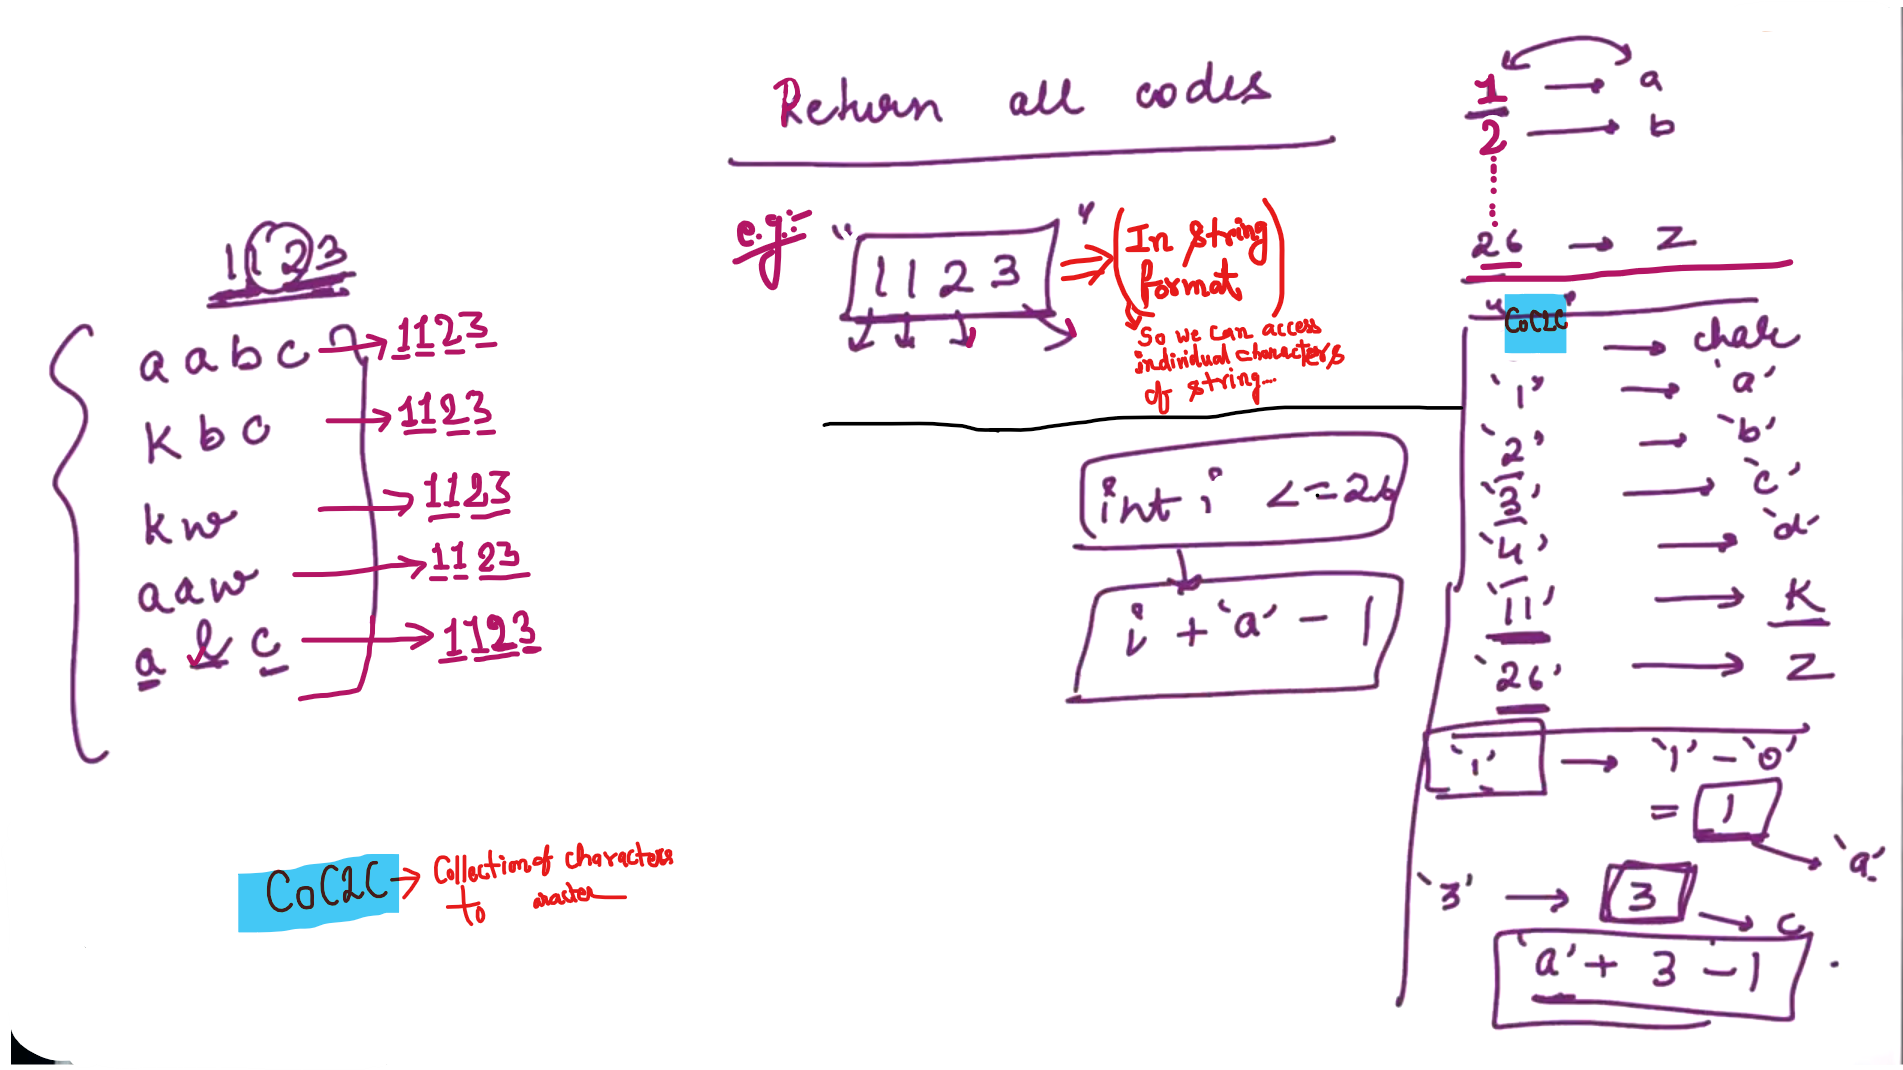 Return all codes
e.g:-
"1123" ⇒ (In string format)
So we can access
individual characters
of string...
1 → a
2 → b
26 → z
1123
aabc → 1123
kbc → 1123
kw → 1123
aaw → 1123
a l c → 1123
CoC2C → Collection of characters
to aracter
int i <=26
i + 'a' - 1
"CoC2C" → char
'1' → 'a'
'2' → 'b'
'3' → 'c'
'4' → 'd'
'11' → K
'26' → z
'1' → '1' - '0'
= 1
'a'
'3' → 3
c
'a' + 3 - 1